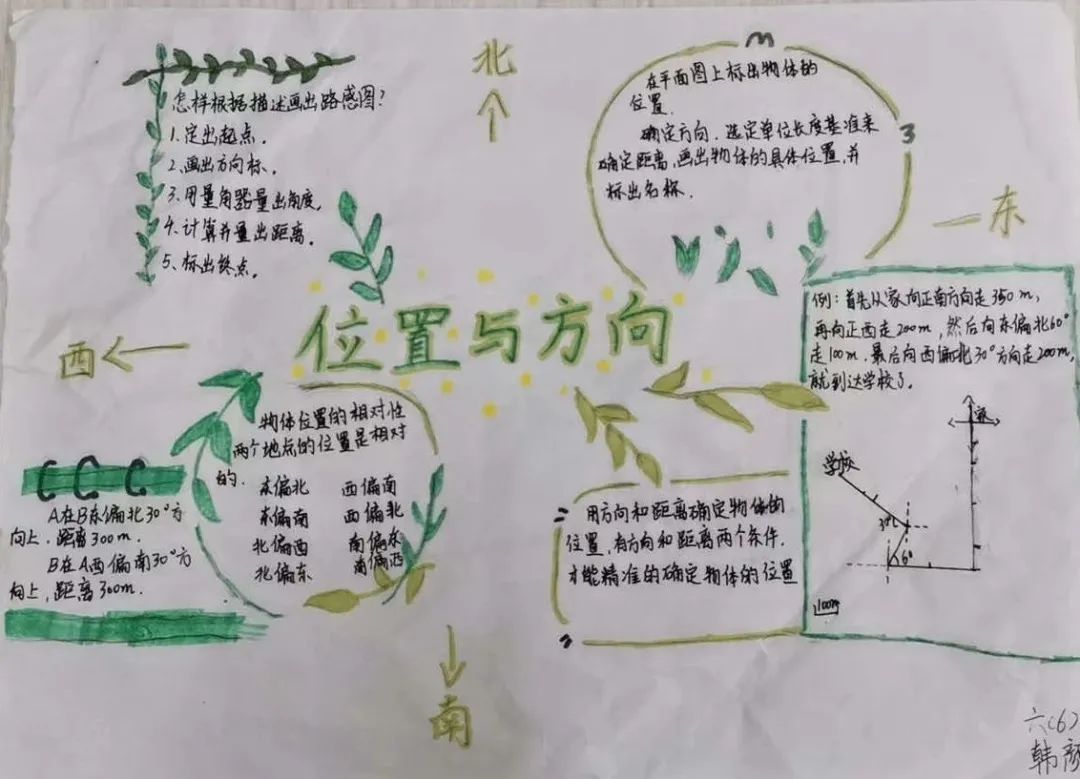 北
怎样根据描述画出路感图?
1.定出起点.
2.画出方向标.
3.用量角器量出角度.
4.计算并量出距离.
5.标出终点.
在平面图上标出物体的
位置.
确定方向.选定单位长度基准来
确定距离,画出物体的具体位置,并
标出名称.
东
位置与方向
西
例:首先从家向正南方向走350m,
再向正西走200m,然后向东偏北60°
走100m.最后向西偏北30°方向走200m,
就到达学校了.
家
学校
30°
6°
100m
物体位置的相对性
两个地点的位置是相对
的.
东偏北 西偏南
东偏南 西偏北
北偏西 南偏东
北偏东 南偏西
A在B东偏北30°方
向上,距离300m.
B在A西偏南30°方
向上,距离300m.
用方向和距离确定物体的
位置,有方向和距离两个条件.
才能精准的确定物体的位置
南
六(6)
韩